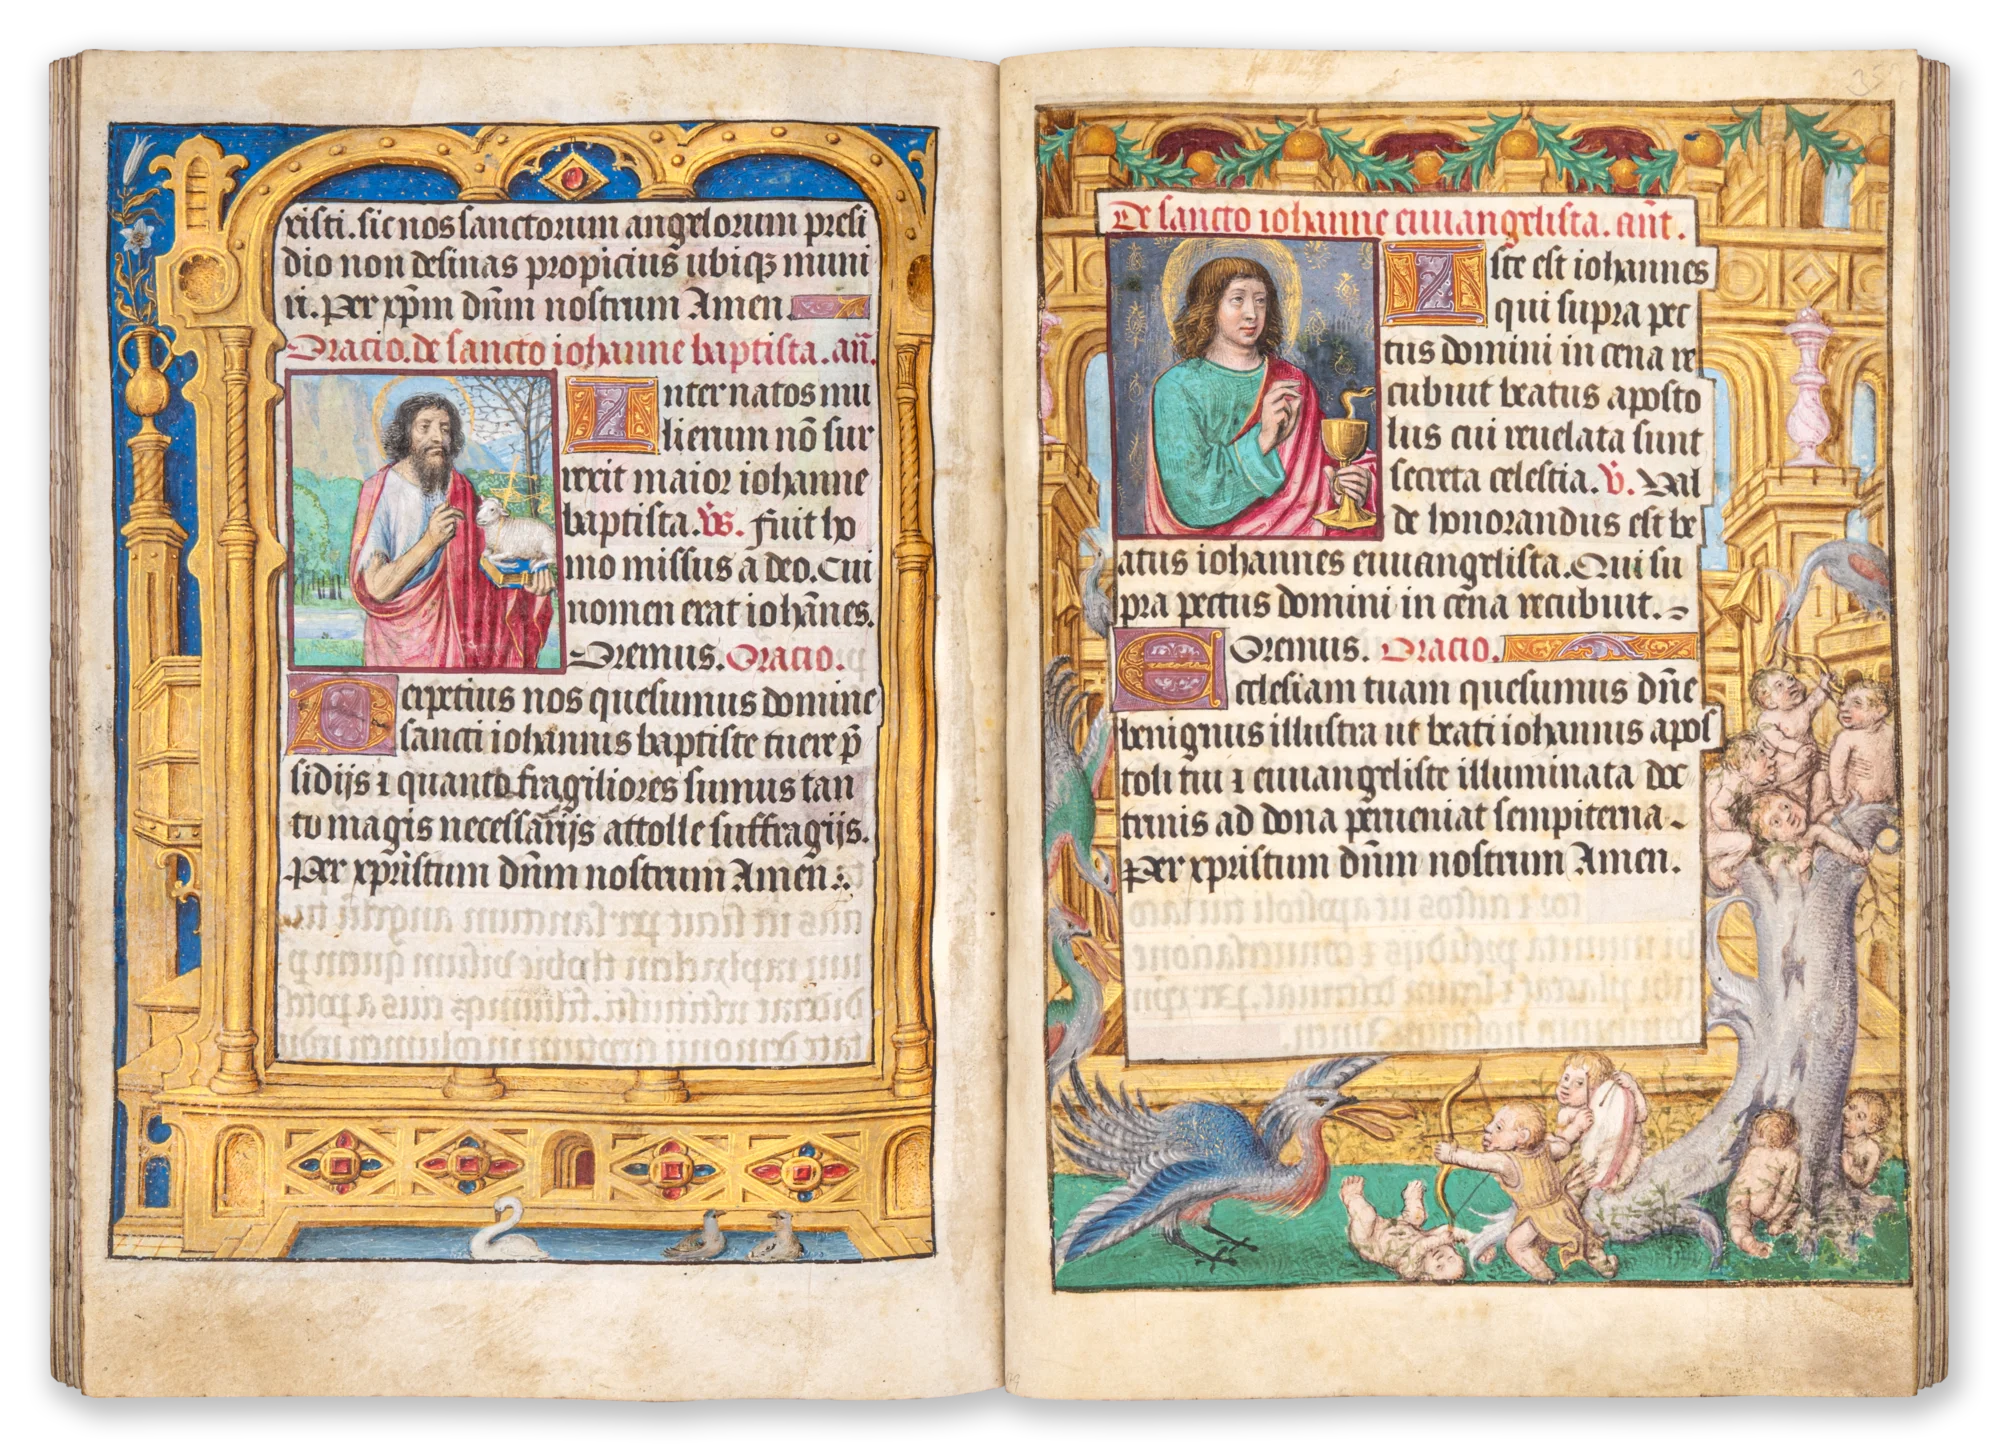 risti. sic nos sanctorum angelorum presi
dio non desinas propicius ubiqꝫ muni
ri. Per xp̄m dn̄m nostrum Amen.
Oracio. de sancto iohanne baptista. an̄.
Inter natos mu
lierum nō sur
rexit maior iohanne
baptista. v̄s. Fuit ho
mo missus a deo. Cui
nomen erat ioh̄nes.
Oremus. Oracio.
Perpetius nos quesumus domine
sancti iohannis baptiste tuere p̄
sidijs ⁊ quanto fragiliores sumus tan
to magis necessarijs attolle suffragijs.
Per xpristum dn̄m nostrum Amen.
De sancto iohanne euuangelista. an̄t.
Iste est iohannes
qui supra pec
tus domini in cena re
cubuit beatus aposto
lus cui reuelata sunt
secreta celestia. v̄. Val
de honorandus est be
atus iohannes euuangelista. Qui su
pra pectus domini in cena recubuit.
Oremus. Oracio.
Ecclesiam tuam quesumus dn̄e
benignus illustra ut beati iohannis apos
toli tui ⁊ euuangeliste illuminata doc
trinis ad dona perueniat sempiterna
Per xpristum dn̄m nostrum Amen.